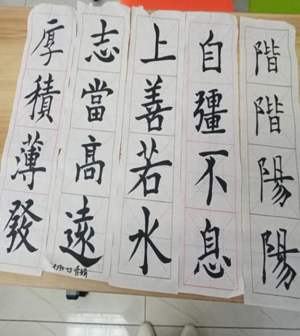 厚積薄發
志當高遠
上善若水
自疆不息
階階陽陽